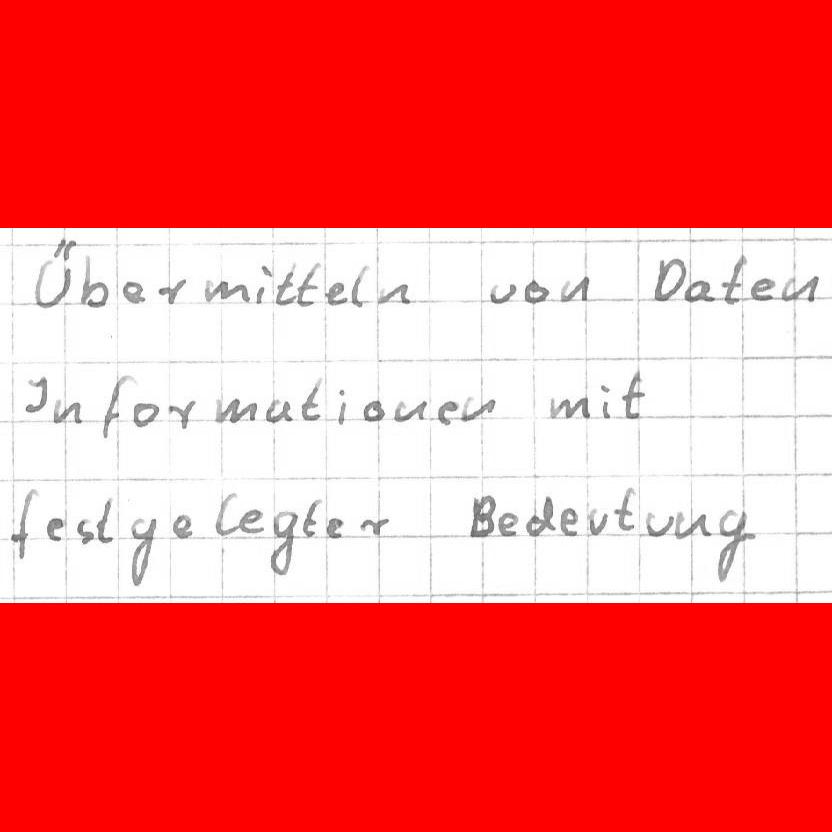 Übermitteln von Daten
Informationen mit
festgelegter Bedeutung